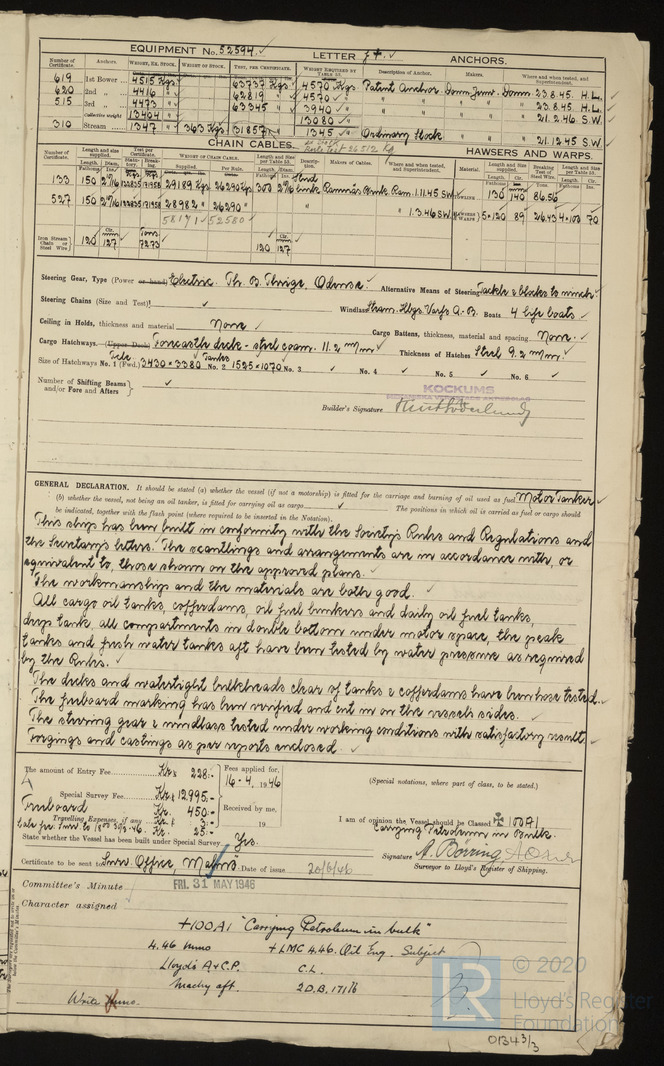 EQUIPMENT No. 52594. LETTER ANCHORS.
Number of Certificate. Anchors. WEIGHT, EX. STOCK. WEIGHT OF STOCK. TEST, PER CERTIFICATE. WEIGHT REQUIRED BY TABLE Description of Anchor. Makers. Where and when tested, and Superintendent.
619 1st Bower 4515 Kgs 63737 Kgs 4570 Kgs Patent Anchor 23.8.45. H.L.
620 2nd " 4416 " 62819 " 4570 " " " 23.8.45. H.L.
515 3rd " 4473 " 63345 " 3940 " " " 21.2.46. S.W.
Collective weight 13404 " 13080 "
310 Stream 1347 " 363 Kgs 31857 1345 " Ordinary Stock 21.12.45 S.W.
CHAIN CABLES. HAWSERS AND WARPS.
Number of Certificate. Length and size supplied. Test per Certificate. WEIGHT OF CHAIN CABLE. Length and Size per Table 53. Description. Makers of Cables. Where and when tested, and Superintendent. Material. Length and Size supplied. Breaking Test of Steel Wire. Length and Size per Table 53.
133 150 2 11/16 29189 Kgs 26290 Kgs 300 2 11/16 1.11.45 S.W. 130 140 86.56
527 150 2 11/16 28982 " 26290 " " 1.3.46 S.W. HAWSERS & WARPS 5 × 120 89 26.43 4 × 108 70
58171 52580
Iron Stream Chain or Steel Wire. 120 127 Tons 72.73 120 127
Steering Gear, Type (Power or hand) Electric. Th. B. Thrige, Odense. Alternative Means of Steering Tackle & blocks to winch.
Steering Chains (Size and Test) Windlass Steam. Boats 4 life boats
Ceiling in Holds, thickness and material None Cargo Battens, thickness, material and spacing None.
Cargo Hatchways. (Upper Deck) Forecastle deck - steel coam. 11.2 m/m Thickness of Hatches Steel 9.2 m/m.
Size of Hatchways No. 1 (Fwd.) 3430 × 3380 No. 2 Tanks 1525 × 1070 No. 3 No. 4 No. 5 No. 6
Number of Shifting Beams and/or Fore and Afters
KOCKUMS
Builder's Signature
GENERAL DECLARATION. It should be stated (a) whether the vessel (if not a motorship) is fitted for the carriage and burning of oil used as fuel Motor Tanker
(b) whether the vessel, not being an oil tanker, is fitted for carrying oil as cargo The positions in which oil is carried as fuel or cargo should
be indicated, together with the flash point (where required to be inserted in the Notation).
This ship has been built in conformity with the Society's Rules and Regulations and
the Secretary's letters. The scantlings and arrangements are in accordance with, or
equivalent to, those shown on the approved plans.
The workmanship and the materials are both good.
All cargo oil tanks, cofferdams, oil fuel bunkers and daily oil fuel tanks,
deep tank, all compartments in double bottom under motor space, the peak
tanks and fresh water tanks aft have been tested by water pressure as required
by the Rules.
The decks and watertight bulkheads clear of tanks & cofferdams have been hose tested.
The freeboard marking has been verified and cut in on the vessel's sides.
The steering gear & windlass tested under working conditions with satisfactory result
Forgings and castings as per reports enclosed.
The amount of Entry Fee Kr. 228:- Fees applied for, 16-4, 1946 (Special notations, where part of class, to be stated.)
Special Survey Fee Kr. 12995:-
Freeboard Kr. 450:- Received by me,
Travelling Expenses, if any Kr. 3:- 19 I am of opinion the Vessel should be Classed ✠ 100A1
Kr. 25:- Carrying Petroleum in Bulk.
State whether the Vessel has been built under Special Survey Yes. Signature A. Börring
Surveyor to Lloyd's Register of Shipping.
Certificate to be sent to Surv. Office, Malmö Date of issue 20/6/46
Committee's Minute FRI. 31 MAY 1946
Character assigned
+100A1 "Carrying Petroleum in bulk"
4.46 + LMC 4.46. Oil Eng. Subject
Lloyd's A & C.P. C.L.
Machy aft. 2 D.B.
Write
LR © 2020
Lloyd's Register
Foundation